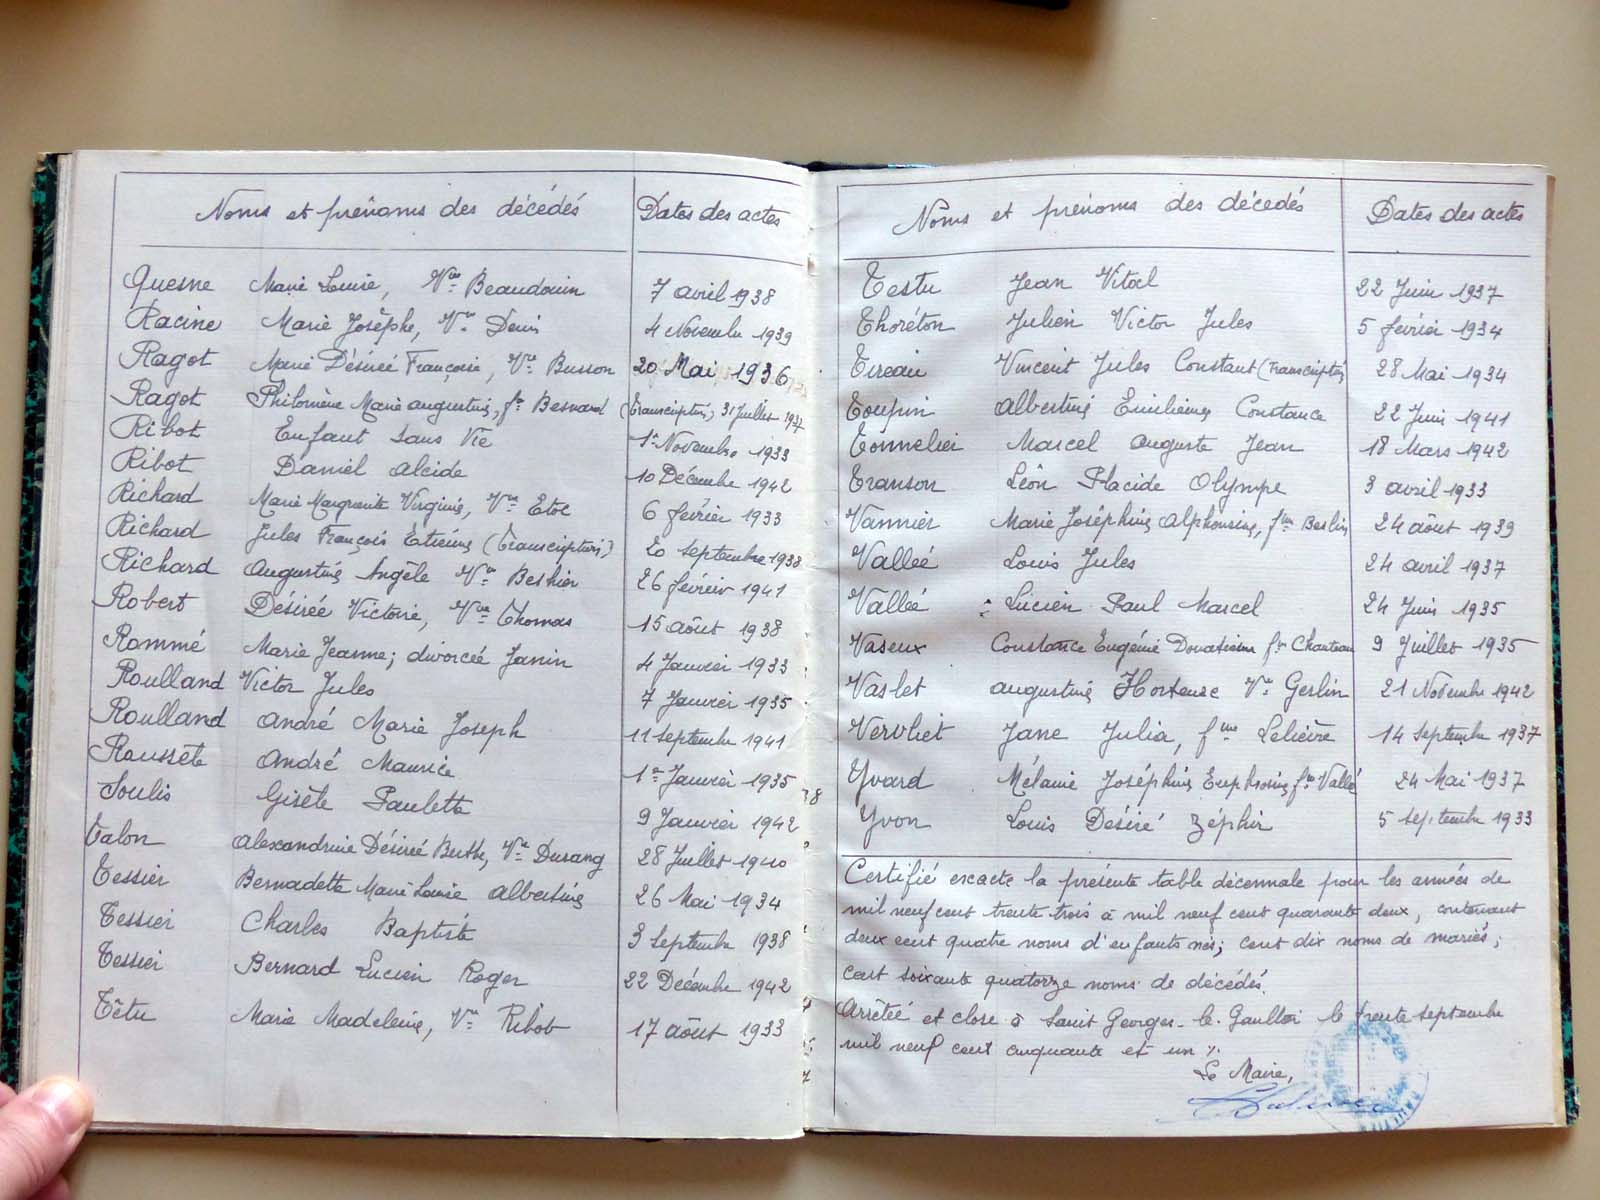 Noms et prénoms des décédés Dates des actes
Quesne Marie Louise, Vve Beaudouin 7 avril 1938
Racine Marie Josèphe, Vve Denis 4 Novembre 1939
Ragot Marie Désirée Françoise, Vve Busson 20 Mai 1936
Ragot Philomène Marie augustine, fe Besnard (transcription) 31 Juillet 1937
Ribot Enfant sans Vie 1er Novembre 1933
Ribot Daniel alcide 10 Décembre 1942
Richard Marie Marguerite Virginie, Vve Etoc 6 février 1933
Richard Jules François Etienne (transcription) 20 septembre 1938
Richard Augustine Angèle Vve Beshier 26 février 1941
Robert Désirée Victoire, Vve Thomas 15 août 1938
Rommé Marie Jeanne; divorcée Janin 4 Janvier 1933
Roulland Victor Jules 7 Janvier 1935
Roulland André Marie Joseph 11 septembre 1941
Roussête André Maurice 1er Janvier 1935
Soulis Gisèle Paulette 9 Janvier 1942
Talon alexandrine Désirée Berthe, Vve Durang 28 Juillet 1940
Tessier Bernadette Marie Louise albertine 26 Mai 1934
Tessier Charles Baptiste 3 septembre 1938
Tessier Bernard Lucien Roger 22 Décembre 1942
Têtu Marie Madeleine, Vve Ribot 17 août 1933
Noms et prénoms des décédés Dates des actes
Testu Jean Vital 22 Juin 1937
Thoréton Julien Victor Jules 5 février 1934
Tireau Vincent Jules Constant (transcription) 28 Mai 1934
Toupin albertine Emilienne Constance 22 Juin 1941
Tonnelier Marcel auguste Jean 18 Mars 1942
Transon Léon Placide Olympe 3 avril 1933
Vannier Marie Joséphine alphonsine, fme Beslin 24 août 1939
Valleé Louis Jules 24 avril 1937
Valleé Lucien Paul Marcel 24 Juin 1935
Vaseux Constance Eugénie Donatienne fe Chanteau 9 Juillet 1935
Vaslet augustine Hortense Vve Gerlin 21 Novembre 1942
Vervliet Jane Julia, fme Lelièvre 14 septembre 1937
Yvard Mélanie Joséphine Euphrosine fme Vallé 24 Mai 1937
Yvon Louis Désiré Zéphir 5 septembre 1933
Certifié exacte la présente table décennale pour les années de
mil neuf cent trente-trois à mil neuf cent quarante deux, contenant
deux cent quatre noms d'enfants nés; cent dix noms de mariés;
cent soixante quatorze noms de décédés.
Arrêtée et close à Saint Georges-le-Gaultier le trente septembre
mil neuf cent cinquante et un %.
Le Maire,